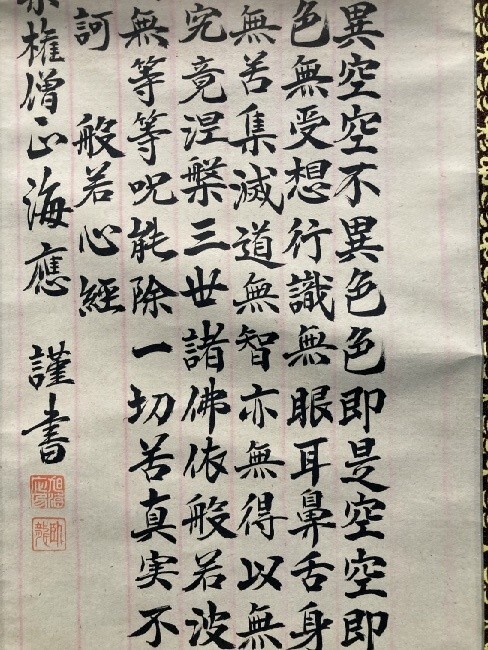 異空空不異色色即是空空即
色無受想行識無眼耳鼻舌身
無苦集滅道無智亦無得以無
究竟涅槃三世諸佛依般若波
無等等呪能除一切苦真実不
訶 般若心經
権僧正海應 謹書